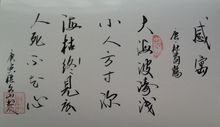 感寓
唐 杜荀鹤
大海波涛浅
小人方寸深
海枯终见底
人死不知心